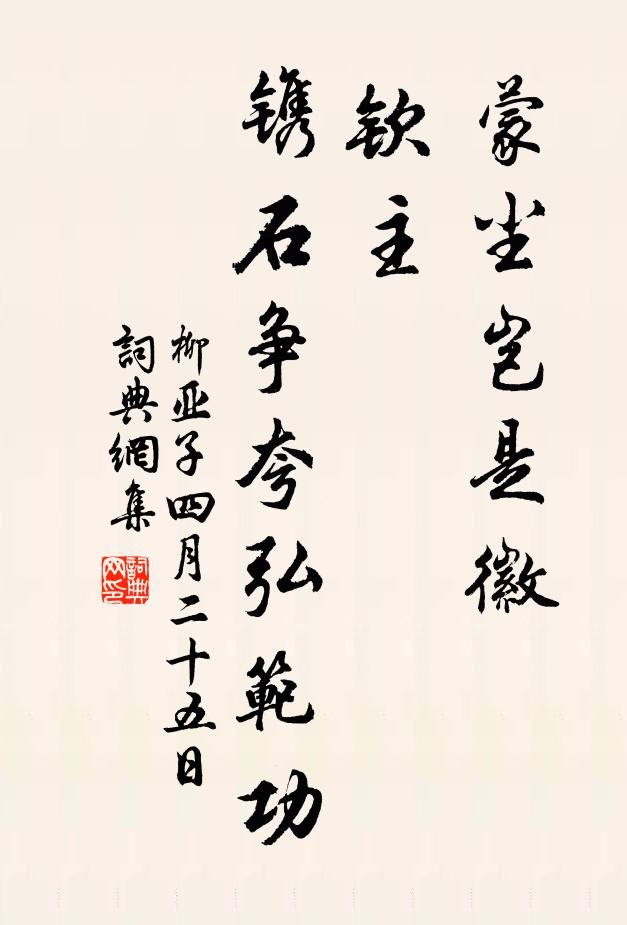 蒙尘岂是徽
钦主
镌石争夸弘範功
柳亚子四月二十五日
詞典網集
詞典网印